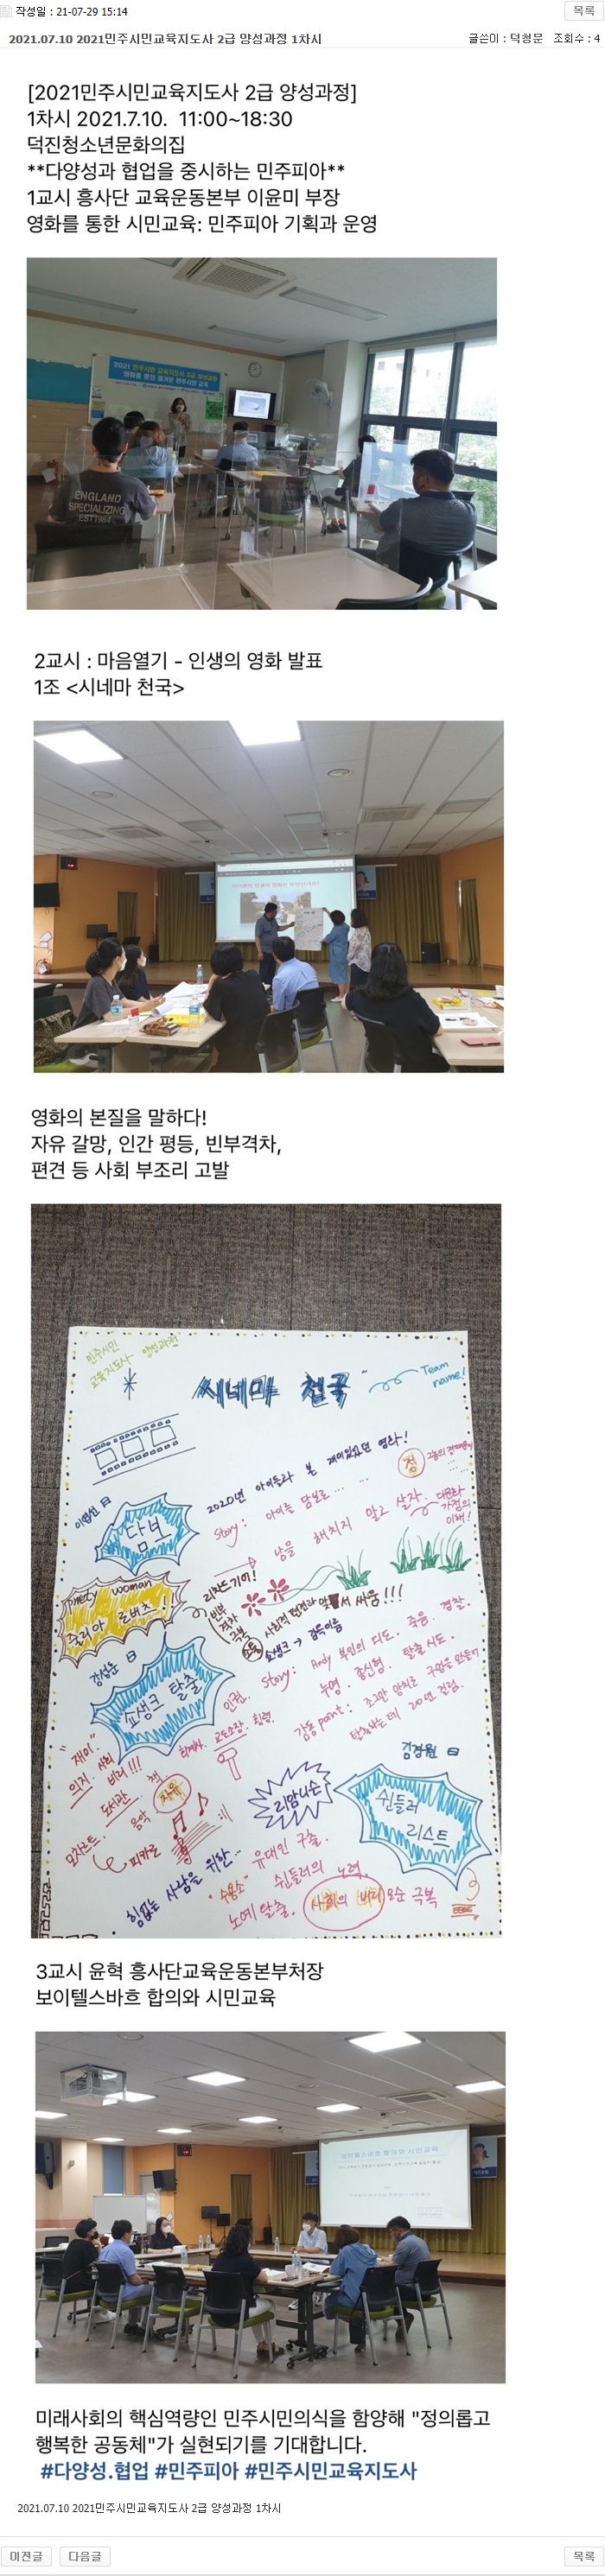 작성일 : 21-07-29 15:14
목록
2021.07.10 2021민주시민교육지도사 2급 양성과정 1차시
글쓴이 : 덕청문 조회수 : 4
[2021민주시민교육지도사 2급 양성과정]
1차시 2021.7.10. 11:00~18:30
덕진청소년문화의집
**다양성과 협업을 중시하는 민주피아**
1교시 흥사단 교육운동본부 이윤미 부장
영화를 통한 시민교육: 민주피아 기획과 운영
2021 민주시민 교육지도사 2급 양성과정
영화를 통한 즐거운 민주시민 교육
ENGLAND
SPECIALIZING
EST1984
2교시 : 마음열기 - 인생의 영화 발표
1조 <시네마 천국>
영화의 본질을 말하다!
자유 갈망, 인간 평등, 빈부격차,
편견 등 사회 부조리 고발
민주시민
교육지도사 양성과정
시네마 천국
Team
name!
2020년 아이들과 본 재미있었던 영화!
담보
Story: 아이를 담보로......
남을 해치지 말고 살자.
pretty woman
줄리아 로버츠!
빈부
격차
극복
쇼생크 → 감독이름
쇼생크 탈출
Story: Andy 부인의 외도. 죽음. 경찰.
누명. 종신형. 탈출시도.
감동 point:
인권.
교도소장. 횡령
"재미"
의지. 사회
비리!!!
도서관. 책
음악
자유
모차르트.
피카로
김경원
리암니슨
쉰들러
리스트
힘없는 사람을 위한..
유대인 구출.
"수용소"
쉰들러의 노력.
노예 탈출. 사회의 비리 모순 극복
3교시 윤혁 흥사단교육운동본부처장
보이텔스바흐 합의와 시민교육
보이텔스바흐 합의와 시민교육
미래사회의 핵심역량인 민주시민의식을 함양해 "정의롭고
행복한 공동체"가 실현되기를 기대합니다.
#다양성.협업 #민주피아 #민주시민교육지도사
2021.07.10 2021민주시민교육지도사 2급 양성과정 1차시
이전글
다음글
목록